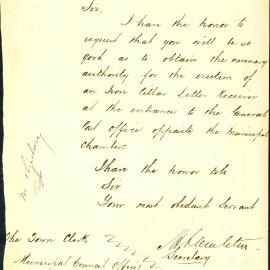 Sir,
I have the honor to
request that you will be so
good as to obtain the necessary
authority for the erection of
an Iron Pillar Letter Receiver
at the entrance to the General
Post Office opposite the Municipal
Chambers.
I have the honor to be
Sir
Your most obedient Servant
Secretary
The Town Clerk
Municipal Council Office